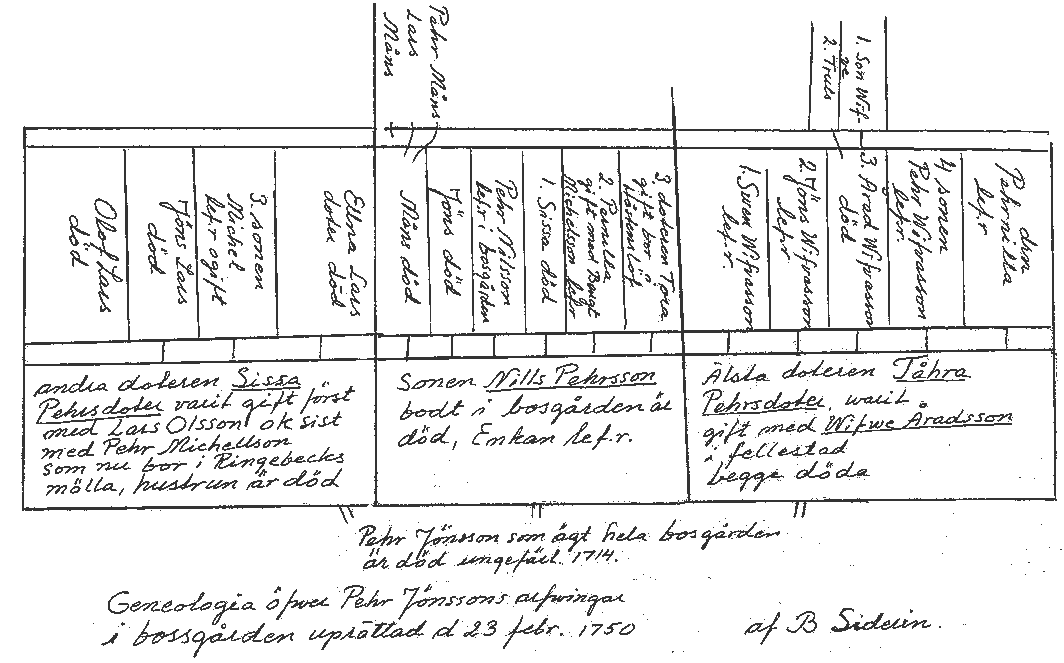 Pehr Måns
Lars
Måns
1. Son Wif-
ve
2. Truls
Olof Lars
död
Jöns Lars
död
3. sonen
Michel
lefr ogift
Ellna Lars
doter död
Måns död
Jöns död
Pehr Nilsson
lefr i bosgården
1. Sissa död
2. Pernilla
gift med Bengt
Michelsson lefr
3. doteren Tora
gift bor i
1. Swen Wifvasson
lef.r.
2. Jöns Wifvasson
lef.r
3. Arad Wifvasson
död
4 sonen
Pehr Wifvasson
lefr.
Pehrnilla
lef.r
andra doteren Sissa
Pehrsdoter varit gift först
med Lars Olsson ok sist
med Pehr Michellson
som nu bor i Ringebecks
mölla, hustrun är död
Sonen Nills Pehrsson
bodt i bosgården är
död, Enkan lef.r.
Älsta doteren Tåhra
Pehrsdoter, warit
gift med Wifwe Åradsson
i fellestad
begge döda
Pehr Jönsson som ägt hela bosgården
är död ungefärl. 1714.
Geneologia öfwer Pehr Jönssons arfwingar
i bossgården uprättad d 23 febr. 1750
af B Siderin.